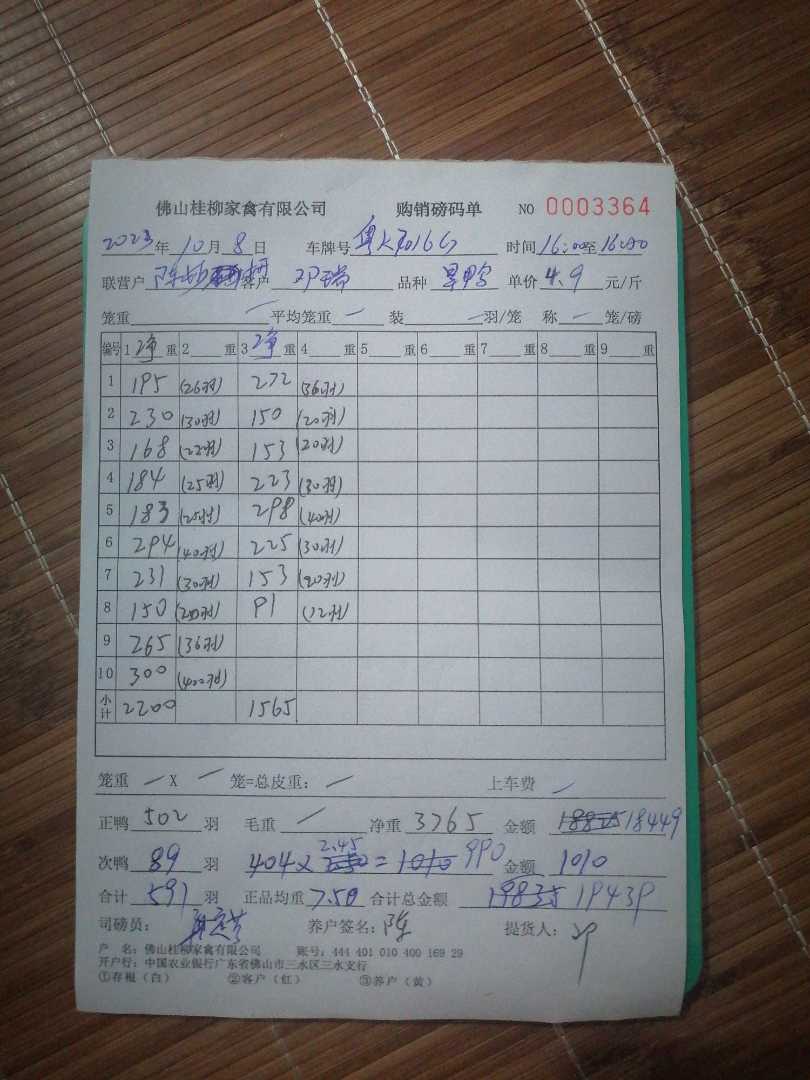 佛山桂柳家禽有限公司 购销磅码单 NO 0003364
2023年10月8日 车牌号 时间16:00至16:30
联营户 陈 客户 邓瑞 品种 单价4.9元/斤
笼重 — 平均笼重 — 装 — 羽/笼 称 — 笼/磅
编号 1净重 2 重 3净重 4 重 5 重 6 重 7 重 8 重 9 重
1 195 (26羽) 272 (36羽)
2 230 (30羽) 150 (20羽)
3 168 (22羽) 153 (20羽)
4 184 (25羽) 223 (30羽)
5 183 (25羽) 298 (40羽)
6 294 (40羽) 225 (30羽)
7 231 (30羽) 153 (20羽)
8 150 (20羽) 91 (12羽)
9 265 (36羽)
10 300 (40羽)
小计 2200 1565
笼重 — X — 笼=总皮重: — 上车费 —
正鸭 502 羽 毛重 — 净重 3765 金额 18449
次鸭 89 羽 404× 2.45 = 990 金额 1010
合计 591 羽 正品均重 7.50 合计总金额 19835 19439
司磅员: 养户签名: 陈 提货人:
户 名: 佛山桂柳家禽有限公司 账号: 444 401 010 400 169 29
开户行: 中国农业银行广东省佛山市三水区三水支行
①存根(白) ②客户(红) ③养户(黄)